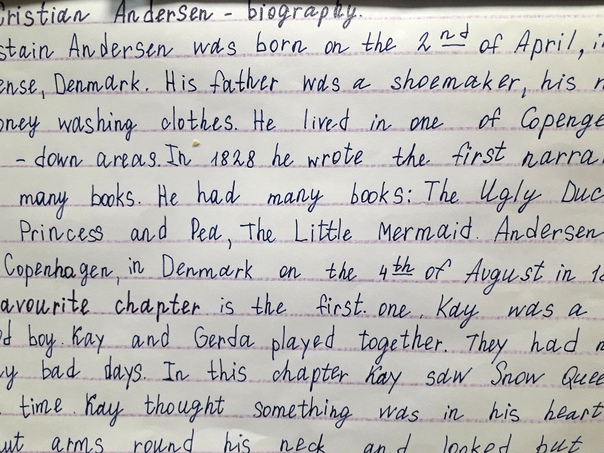 Cristian Andersen - biography.
stain Andersen was born on the 2nd of April, i
ense, Denmark. His father was a shoemaker, his
oney washing clothes. He lived in one of Copenge
- down areas. In 1828 he wrote the first narra
many books. He had many books: The Ugly Duc
Princess and Pea, The Little Mermaid. Andersen
Copenhagen, in Denmark on the 4th of August in 18
avourite chapter is the first. one. Kay was a
d boy. Kay and Gerda played together. They had
y bad days. In this chapter Kay saw Snow Quee
time. Kay thought something was in his heart
ut arms round his neck and looked but